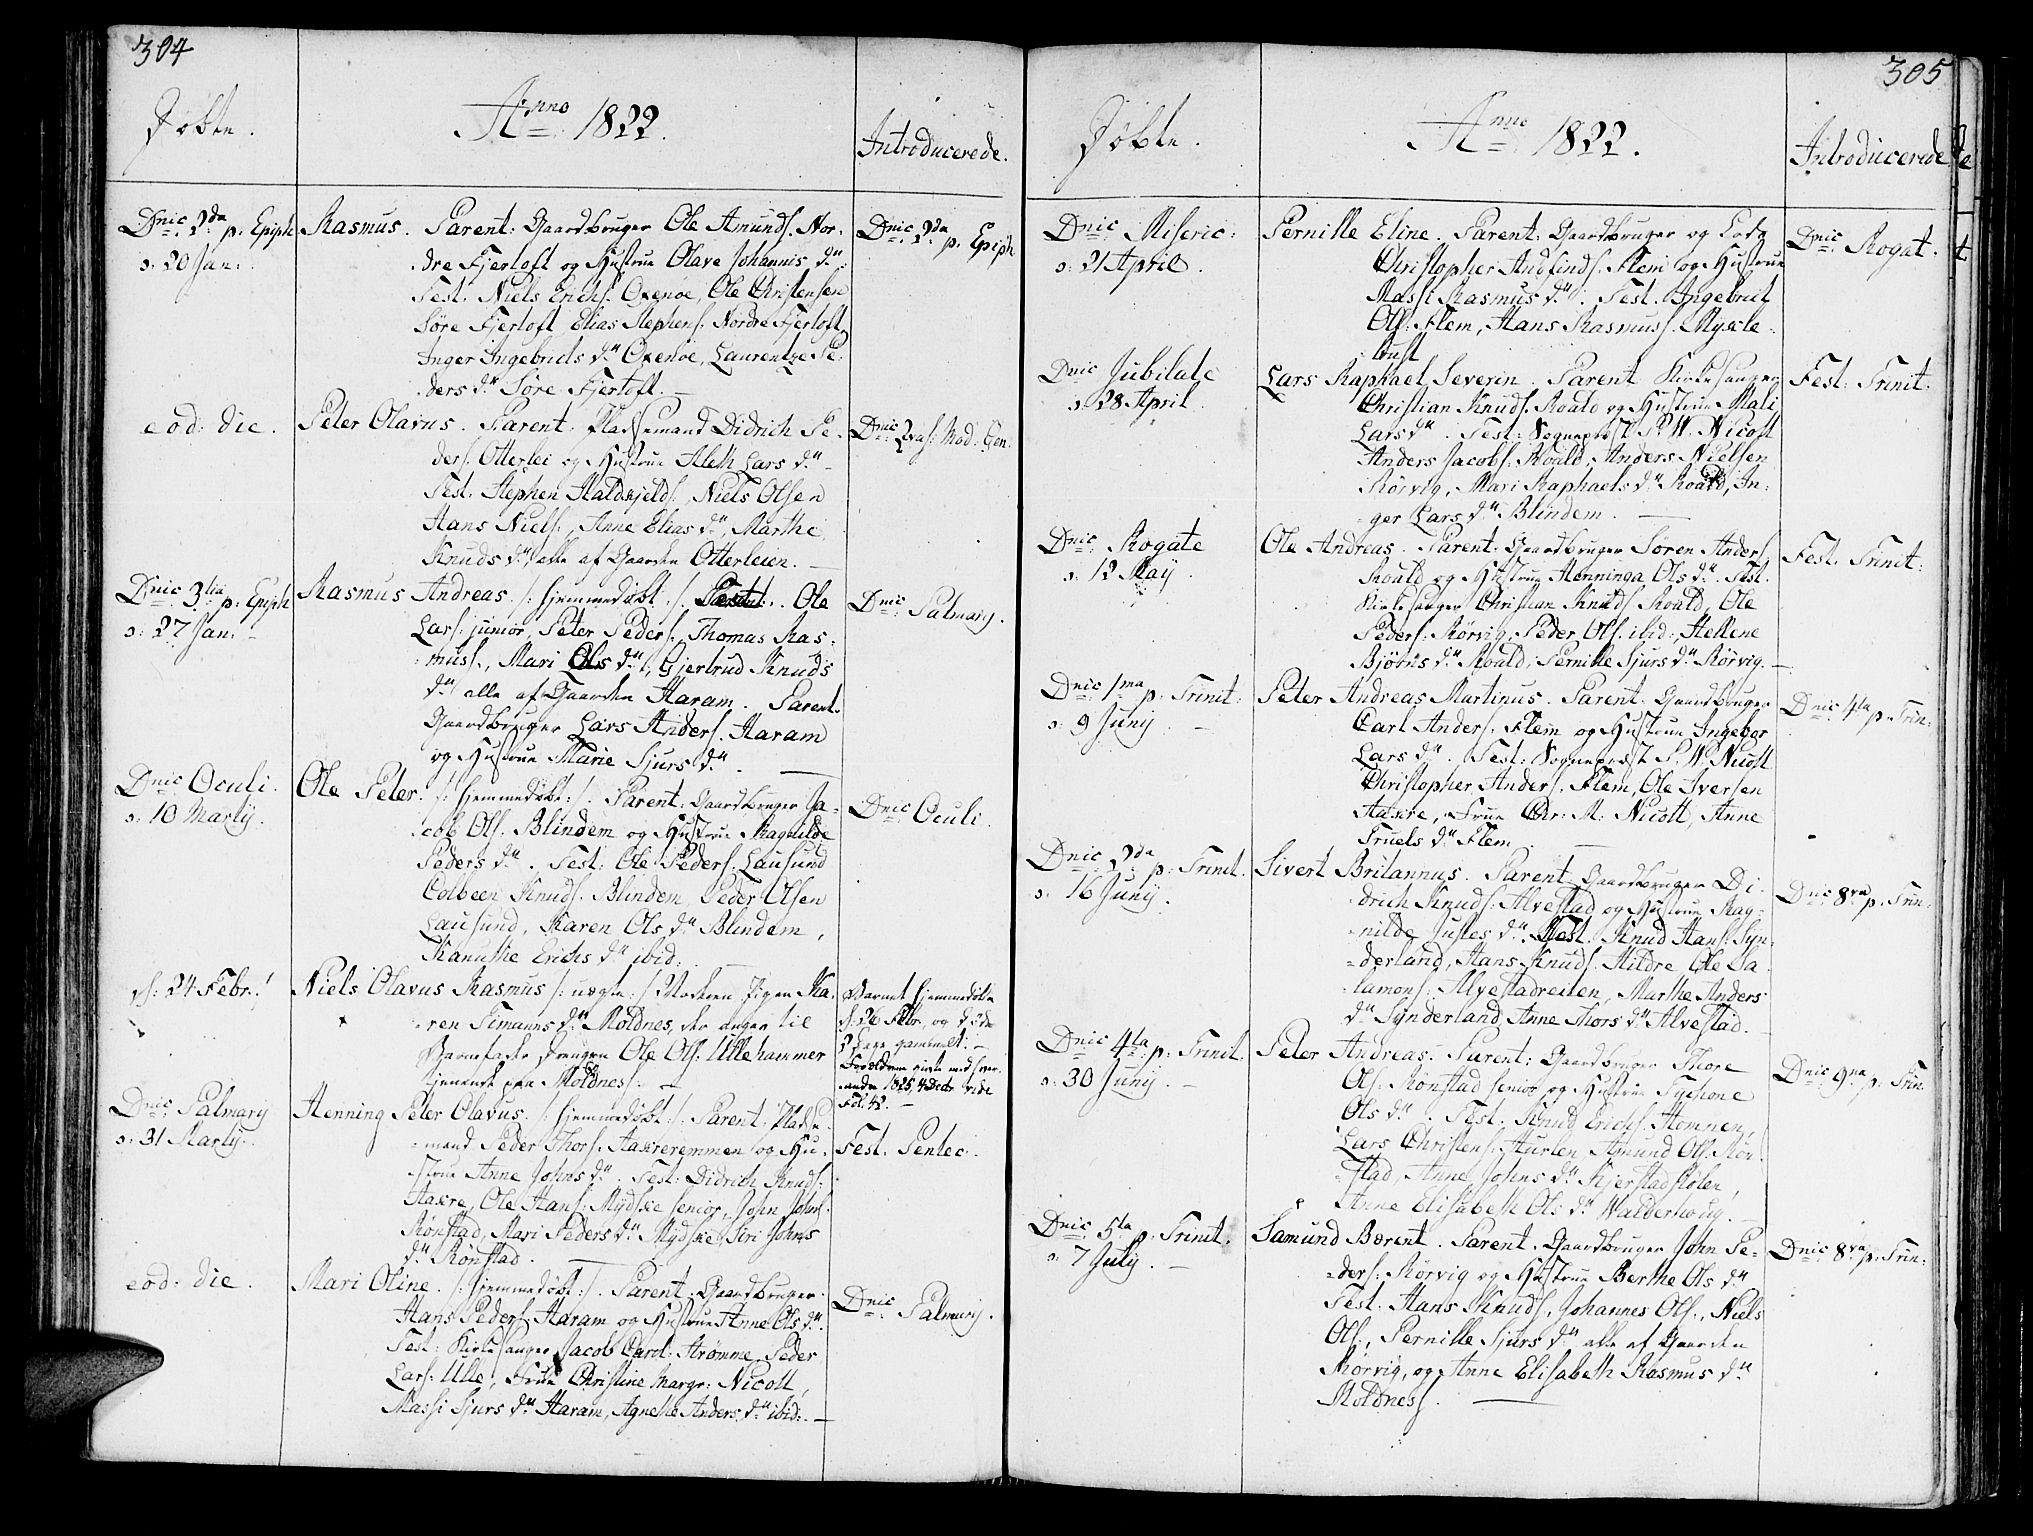 304
Døbte.
Anno 1822.
Introducerede.
Dnic: 2da p: Epiph
o: 20 Jan:
Rasmus. Parent: Gaardbruger Ole Amunds. Nor-
dre Fjertoft og Hustrue Olave Johannis dr
Test. Niels Erichs. Oxenøe, Ole Christensen
Søre Fjertoft Elias Stephens. Nordre Fjertoft,
Inger Ingebrigts dr Oxenøe, Laurentze Pe-
ders dr Søre Fjertoft. —
Dnic: 2da p: Epiph
eod: die.
Peter Olavus. Parent. Pladsemand Didrich Pe-
ders. Otterlei og Hustrue Aleth Lars dr
Test. Stephen Haldkjelds., Niels Olsen
Hans Niels., Anne Elias dr, Marthe
Knuds dr, alle af Gaarden Otterleien. —
Dnic: Qvas: Mod. Gen.
Dnic 3tia p: Epiph
o: 27 Jan: -
Rasmus Andreas /: hjemmedøbt :/. Test: . Ole
Lars: junior, Peter Peders., Thomas Ras-
mus., Mari Ols dr, Gjertrud Knuds
dr alle af Gaarden Haram. Parent.
Gaardbruger Lars Anders. Haram
og Hustrue Marie Sjurs dr. —
Dnic: Palmarij.
Dnic Oculi.
o: 10 Martij.
Ole Peter. /: hjemmedøbt :/. Parent: Gaardbruger Ja-
cob Ols. Blindem og Hustrue Ragnilde
Peders dr. Test: Ole Peders. Lausund
Colbeen Knuds. Blindem, Peder Olsen
Lausund, Karen Ols dr Blindem,
Kanutke Erichs dr ibid:
Dnic: Oculi.
d: 24 Febr:
Niels Olavus Rasmus /: uægte :/ Moderen Pigen Ka-
ren Simanns dr Moldnes, der angav til
Barnefader Drengen Ole Ols. Ullehammer
tjenende paa Moldness. —
Barnet hjemmedøbt
d: 26 Febr., og døde
Dage gammelt. -
Forældrene givte med hver-
andre 1825, 4 Decbr vide
Fol. 42. -
Dnic: Palmarij
o: 31 Martij.
Henning Peter Olavus. /: hjemmedøbt :/. Parent: Pladse-
mand Peder Thors. Haxreremmen og Hu-
strue Anne Johns dr. Test: Didrich Knuds:
Haxre, Ole Hans: Mydske senior, John Johns.
Rønstad, Mari Peders dr Mydske, Siri Johns
dr Rønstad. —
Fest. Pentec.
eod: die.
Mari Oline. /: hjemmedøbt :/. Parent: Gaardbruger
Hans Peders. Haram og Hustrue Anne Ols dr
Test: Kirkesanger Jacob Carol: Strømme, Peder
Lars: Ulle, Frue Christine Margr: Nicoll,
Massi Sjurs dr Haram, Agnethe Anders dr ibid: —
Dnic: Palmarij.
305
Døbte.
Anno 1822.
Introducerede
Dnic Miseric:
o: 21 April.
Pernille Eline. Parent: Gaardbruger og Lods
Christopher Andfinds. Flem og Hustrue
Massi Rasmus dr. Test. Ingebrit
Ols: Flem, Hans Rasmuss. Myxle-
bust
Dnic: Rogat.
Dnic: Jubilate
o: 28 April.
Lars Raphael Severin. Parent Kirkesanger
Christian Knuds. Roald og Hustrue Mali
Lars dr. Test: Sogneprest P. W. Nicoll
Anders Jacobs: Roald, Anders Nielsen
Rørvig, Mari Raphaels dr Roald, In-
ger Lars dr Blindem. —
Fest: Trinit:
Dnic: Rogate
o: 12 Maij.
Ole Andreas. Parent: Gaardbruger Søren Anders.
Roald og Hustrue Henninga Ols dr. Test.
Kirkesanger Christian Knuds. Roald, Ole
Peders. Rørvig, Peder Ols. ibid: Hellene
Bjørns dr Roald, Pernille Sjurs dr Rørvig. —
Fest. Trinit:
Dnic 1ma p: Trinit:
o: 9 Junij. -
Peter Andreas Martinus. Parent: Gaardbruger
Carl Anders. Flem og Hustrue Ingebor
Lars dr. Test: Sogneprest P. W. Nicoll
Christopher Anders. Flem, Ole Iversen
Haxre, Frue Chr: M: Nicoll, Anne
Truels dr Flem. —
Dnic: 4ta p: Trin:
Dnic: 2da p: Trinit.
o: 16 Junij.
Sivert Britannus. Parent: Gaardbruger Di-
drich Knuds: Alvestad og Hustrue Rag-
nilde Justes dr. Test. Knud Hans: Syn-
derland, Hans Knuds. Hildre Ole Sa-
lamons. Alvestadreiten, Marthe Anders
dr Synderland, Anne Thors dr Alvestad. —
Dnic: 8va p: Trin:
Dnic 4ta p: Trinit.
o: 30 Junij. -
Peter Andreas. Parent: Gaardbruger Thore
Ols. Rønstad senior og Hustrue Sychone
Ols dr. Test: Knud Erichs. Homnen,
Lars Christens: Hurlen, Amund Ols. Røn-
stad, Anne Johns dr Kjerstad Hølen,
Anne Elisabeth Ols dr Walderhoug. —
Dnic: 9na p: Trin.
Dnic: 5ta p: Trinit.
o: 7 Julij. -
Samund Berent. Parent. Gaardbruger John Pe-
ders: Rørvig og Hustrue Berthe Ols dr
Test: Hans Knuds., Johannes Ols., Niels
Ols., Pernille Sjurs dr alle af Gaarden
Rørvig, og Anne Elisabeth Rasmus dr
Moldness. —
Dnic: 8va p: Trin: